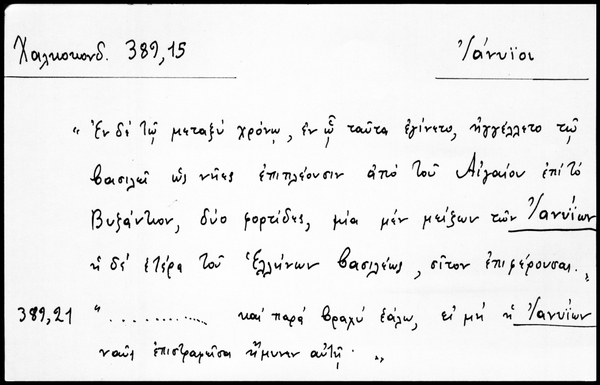 Χαλκοκονδ. 389,15 Ἰανυϊοι
"Ἐν δὲ τῷ μεταξὺ χρόνῳ, ἐν ᾧ ταῦτα ἐγίνετο, ἠγγέλλετο τῷ
βασιλεῖ ὡς νῆες ἐπιπλέουσιν ἀπὸ τοῦ Αἰγαίου ἐπὶ τὸ
Βυζάντιον, δύο φορτίδες, μία μὲν μείζων τῶν Ἰανυΐων
ἡ δὲ ἑτέρα τοῦ Ἑλλήνων βασιλέως, σῖτον ἐπιφέρουσαι.„
389,21 "............. καὶ παρὰ βραχὺ ἑάλω, εἰ μὴ ἡ Ἰανυΐων
ναῦς ἐπιστραφεῖσα ἤμυνεν αὐτῇ·„